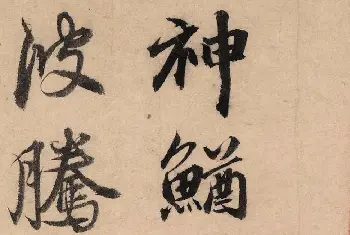 神鰌
波騰